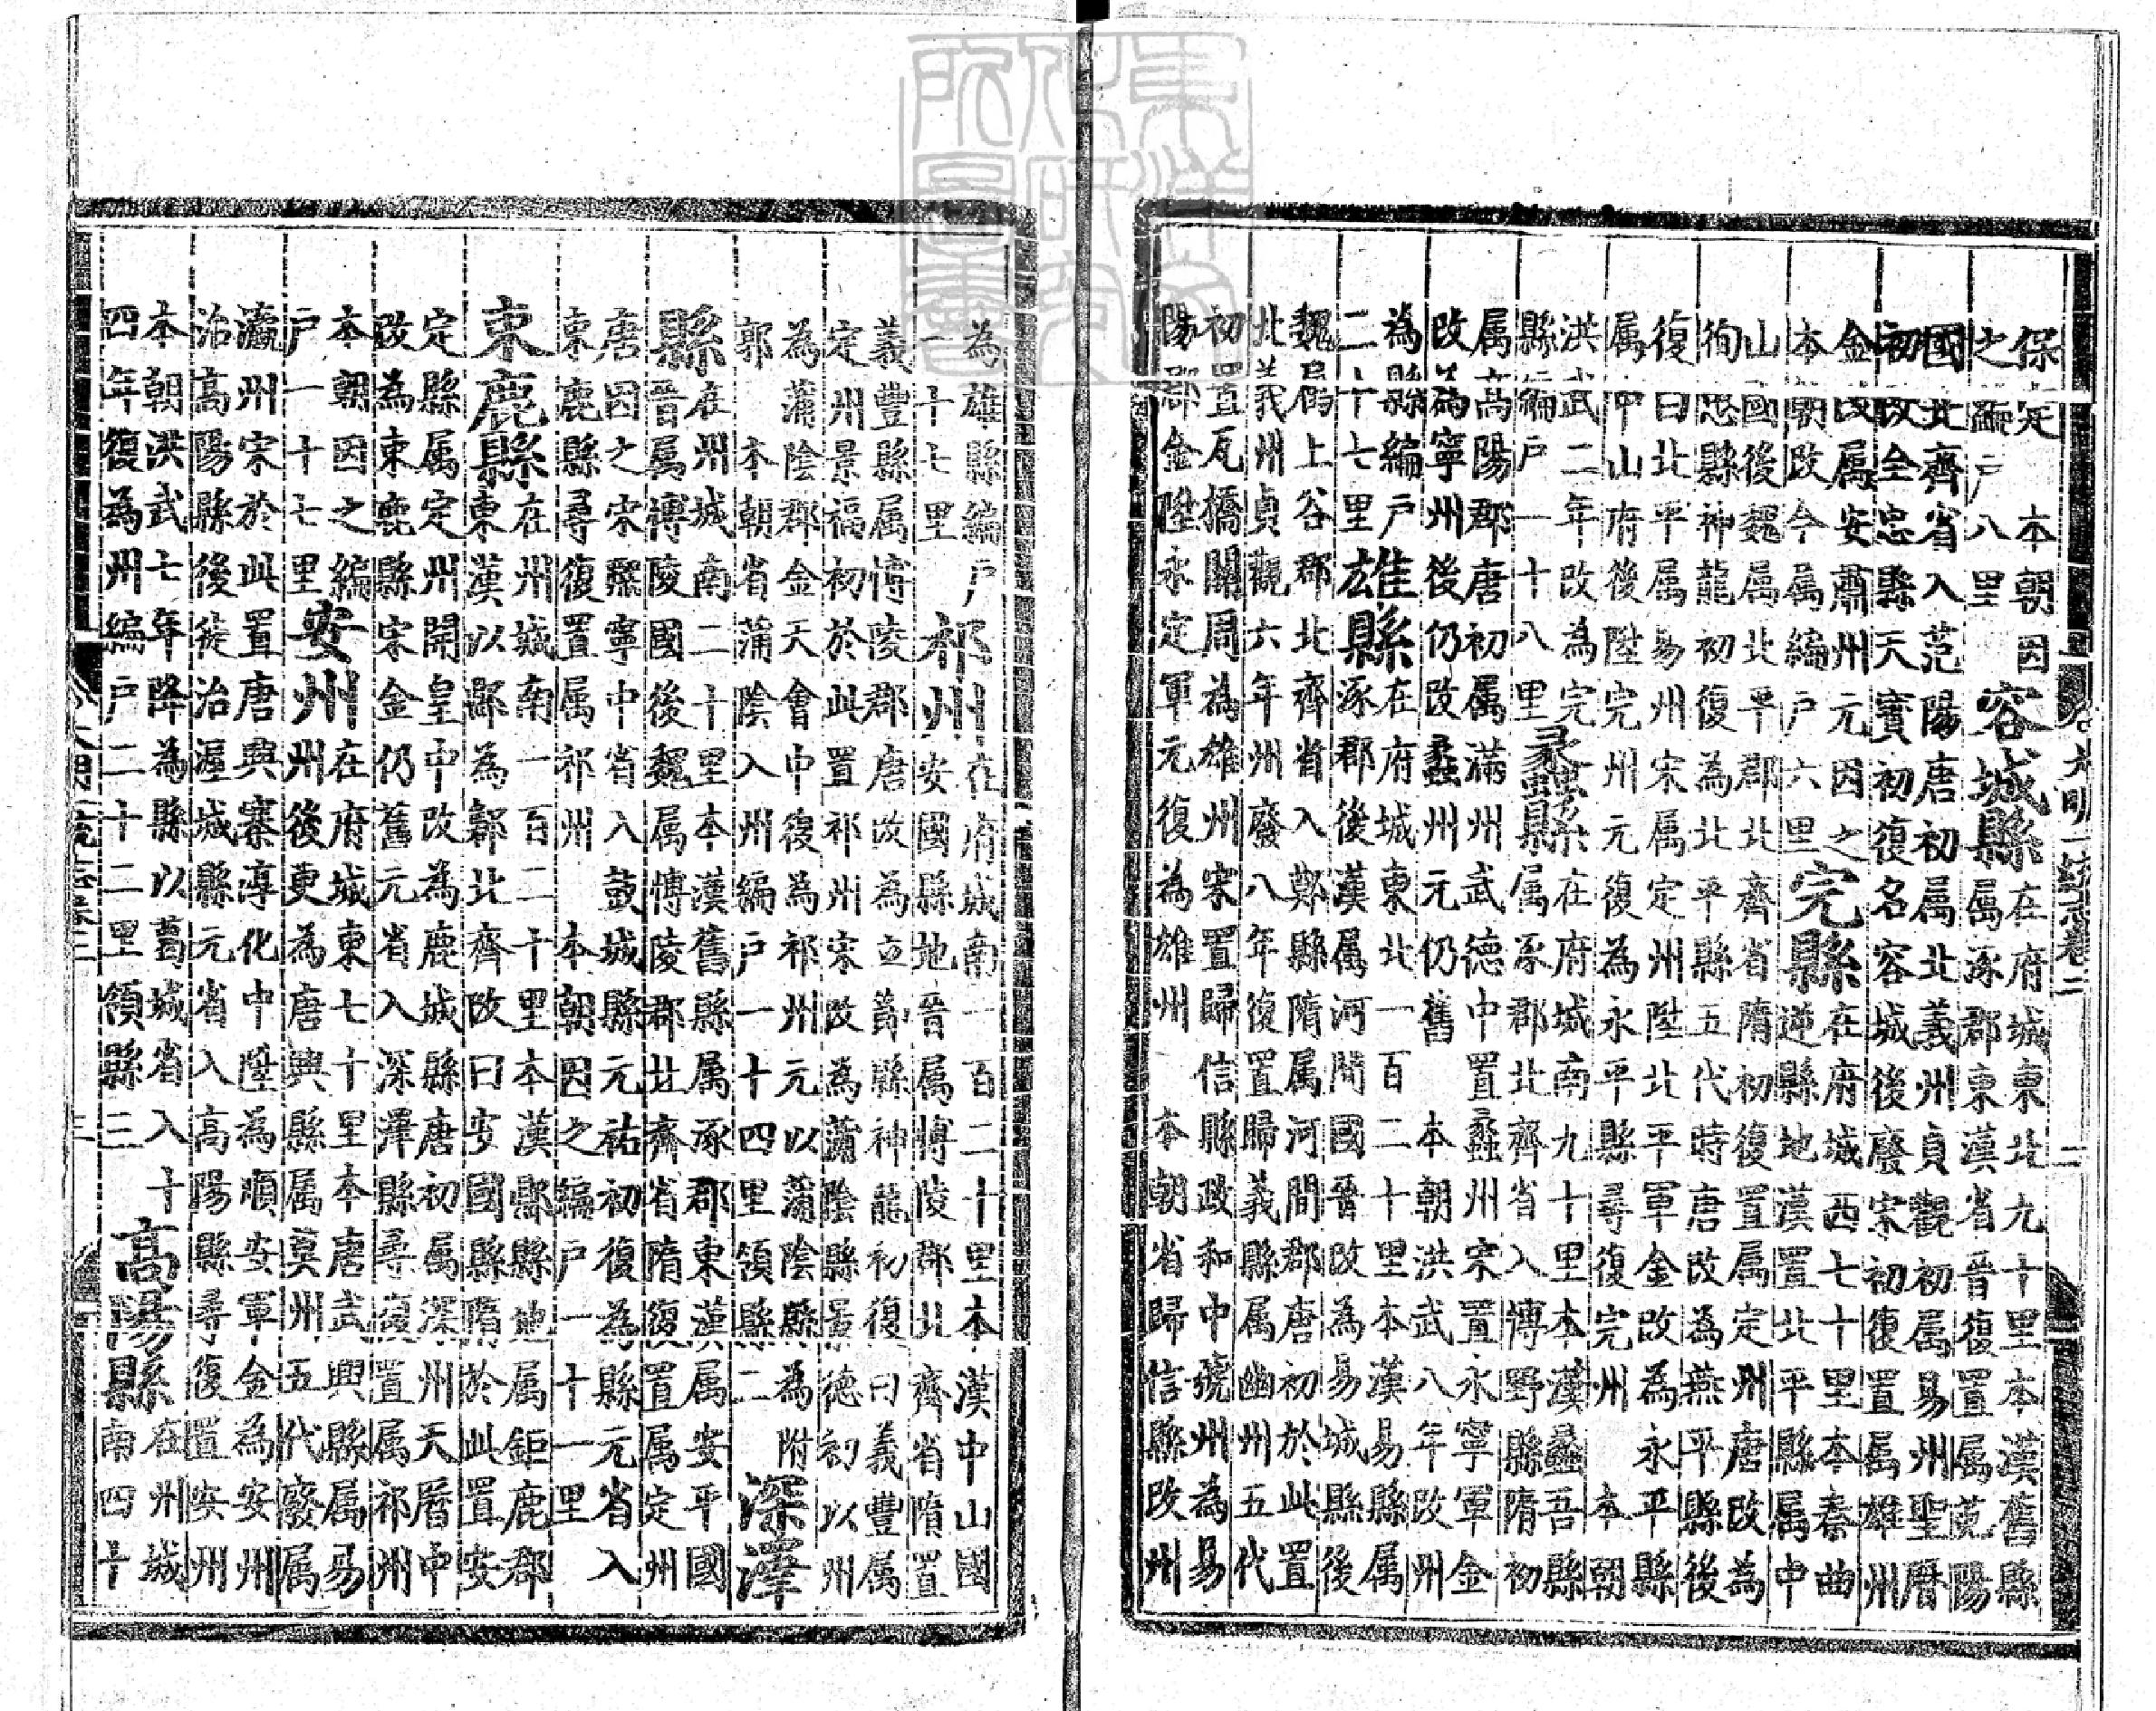 保定　本朝因
之編戶八里
容城縣
在府城東北九十里本漢舊縣
属涿郡東漢省晉復置属范陽
國北齊省入范陽唐初属北義州貞觀初属易州聖曆
初改全忠縣天寳初復名容城後廢宋初復置属雄州
金改属安肅州元因之
本朝改今属編戶六里
完縣
在府城西七十里本秦曲
逆縣地漢置北平縣属中
山國後魏属北平郡北齊省隋初復置属定州唐改為
徇忠縣神龍初復為北平縣五代時唐改為燕平縣後
復曰北平属易州宋属定州陞北平軍金改為永平縣
属中山府後陞完州元復為永平縣尋復完州　本朝
洪武二年改為完
縣編戶一十八里
蠡縣
在府城南九十里本漢蠡吾縣
属涿郡北齊省入博野縣隋初
属高陽郡唐初属滿州武德中置蠡州宋置永寧軍金
改為寧州後仍改蠡州元仍舊　本朝洪武八年改州
為縣編戶
二十七里
雄縣
在府城東北一百二十里本漢易縣属
涿郡後漢属河間國晉改為易城縣後
魏属上谷郡北齊省入鄚縣隋属河間郡唐初於此置
北義州貞觀六年州廢八年復置歸義縣属幽州五代
初置瓦橋關周為雄州宋置歸信縣政和中號州為易
陽郡金陞永定軍元復為雄州　本朝省歸信縣改州
大明一統志卷二　二
為雄縣編戶
一十七里
祁州
在府城南一百二十里本漢中山國
安國縣地晉属博陵郡北齊省隋置
義豐縣属博陵郡唐改為立節縣神龍初復曰義豐属
定州景福初於此置祁州宋改為蒲陰縣景德初以州
為蒲陰郡金天會中復為祁州元以蒲陰縣為附
郭　本朝省蒲陰入州編戶一十四里領縣二
深澤
縣
在州城南二十里本漢舊縣属涿郡東漢属安平國
晉属博陵國後魏属博陵郡北齊省隋復置属定州
唐因之宋熙寧中省入鼓城縣元祐初復為縣元省入
束鹿縣尋復置属祁州　本朝因之編戶一十一里
束鹿縣
在州城南一百二十里本漢鄡縣地属鉅鹿郡
東漢以鄡為鄡北齊改曰安國縣隋於此置安
定縣属定州開皇中改為鹿城縣唐初属深州天曆中
改為束鹿縣宋金仍舊元省入深澤縣尋復置属祁州
本朝因之編
戶一十七里
安州
在府城東七十里本唐武興縣属易
州後更為唐興縣属莫州五代廢属
瀛州宋於此置唐興寨淳化中陞為順安軍金為安州
治高陽縣後徙治渥城縣元省入高陽縣尋復置安州
本朝洪武七年降為縣以葛城省入十
四年復為州編戶二十二里領縣三
高陽縣
在州城
南四十